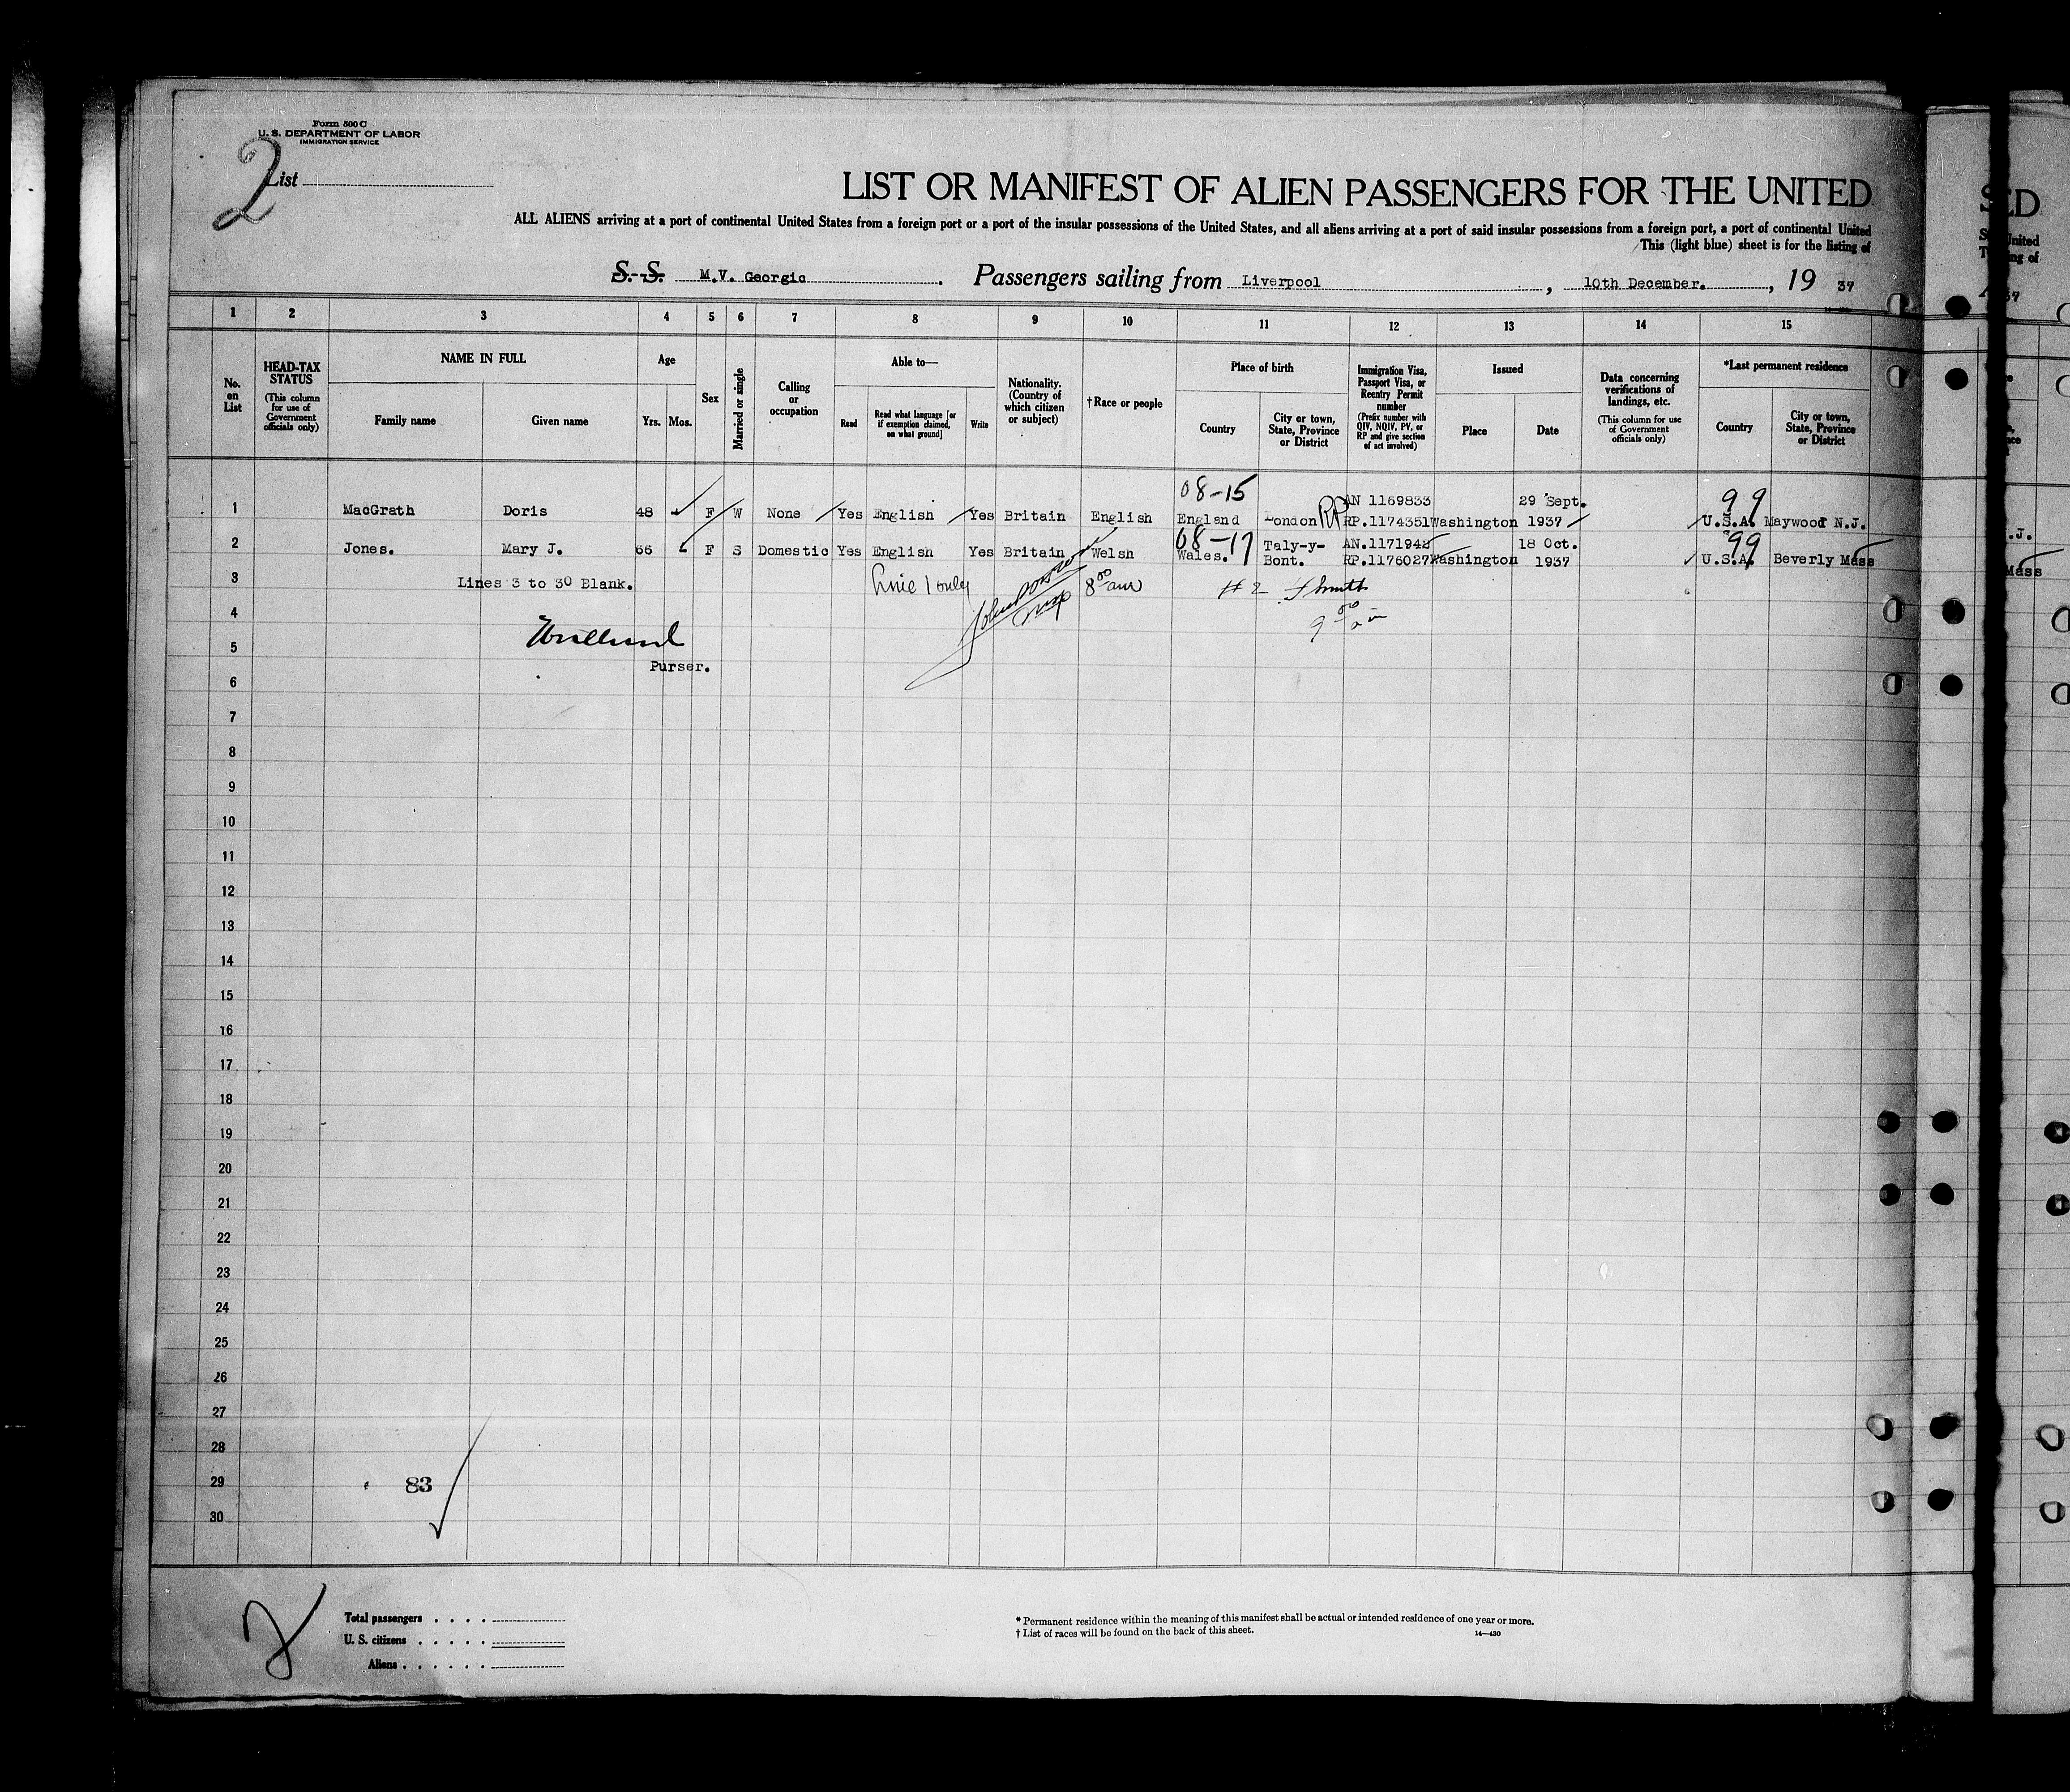 Form 500 C
U. S. DEPARTMENT OF LABOR
IMMIGRATION SERVICE
2
List
LIST OR MANIFEST OF ALIEN PASSENGERS FOR THE UNITED
ALL ALIENS arriving at a port of continental United States from a foreign port or a port of the insular possessions of the United States, and all aliens arriving at a port of said insular possessions from a foreign port, a port of continental United
This (light blue) sheet is for the listing of
S. S. M.V. Georgic. Passengers sailing from Liverpool, 10th December., 19 37
1 2 3 4 5 6 7 8 9 10 11 12 13 14 15
No. on List
HEAD-TAX STATUS (This column for use of Government officials only)
NAME IN FULL
Family name Given name
Age
Yrs. Mos.
Sex
Married or single
Calling or occupation
Able to—
Read
Read what language [or if exemption claimed, on what ground]
Write
Nationality. (Country of which citizen or subject)
† Race or people
Place of birth
Country
City or town, State, Province or District
Immigration Visa, Passport Visa, or Reentry Permit number (Prefix number with QIV, NQIV, PV, or RP and give section of act involved)
Issued
Place Date
Data concerning verifications of landings, etc. (This column for use of Government officials only)
*Last permanent residence
Country
City or town, State, Province or District
08-15 AN 1169833 29 Sept. 99
1 MacGrath Doris 48 F W None Yes English Yes Britain English England London RP RP.1174351 Washington 1937 U.S.A. Maywood N.J.
08-17 AN.1171948 18 Oct. 99
2 Jones. Mary J. 66 F S Domestic Yes English Yes Britain Welsh Wales. Taly-y-Bont. RP.1176027 Washington 1937 U.S.A. Beverly Mass
3 Lines 3 to 30 Blank. Line 1 only 8 00 am # 2 Smith
4 9 00 am
5
Purser.
6
7
8
9
10
11
12
13
14
15
16
17
18
19
20
21
22
23
24
25
26
27
28
29 83
30
2
Total passengers
U. S. citizens
Aliens
* Permanent residence within the meaning of this manifest shall be actual or intended residence of one year or more.
† List of races will be found on the back of this sheet.
14—430